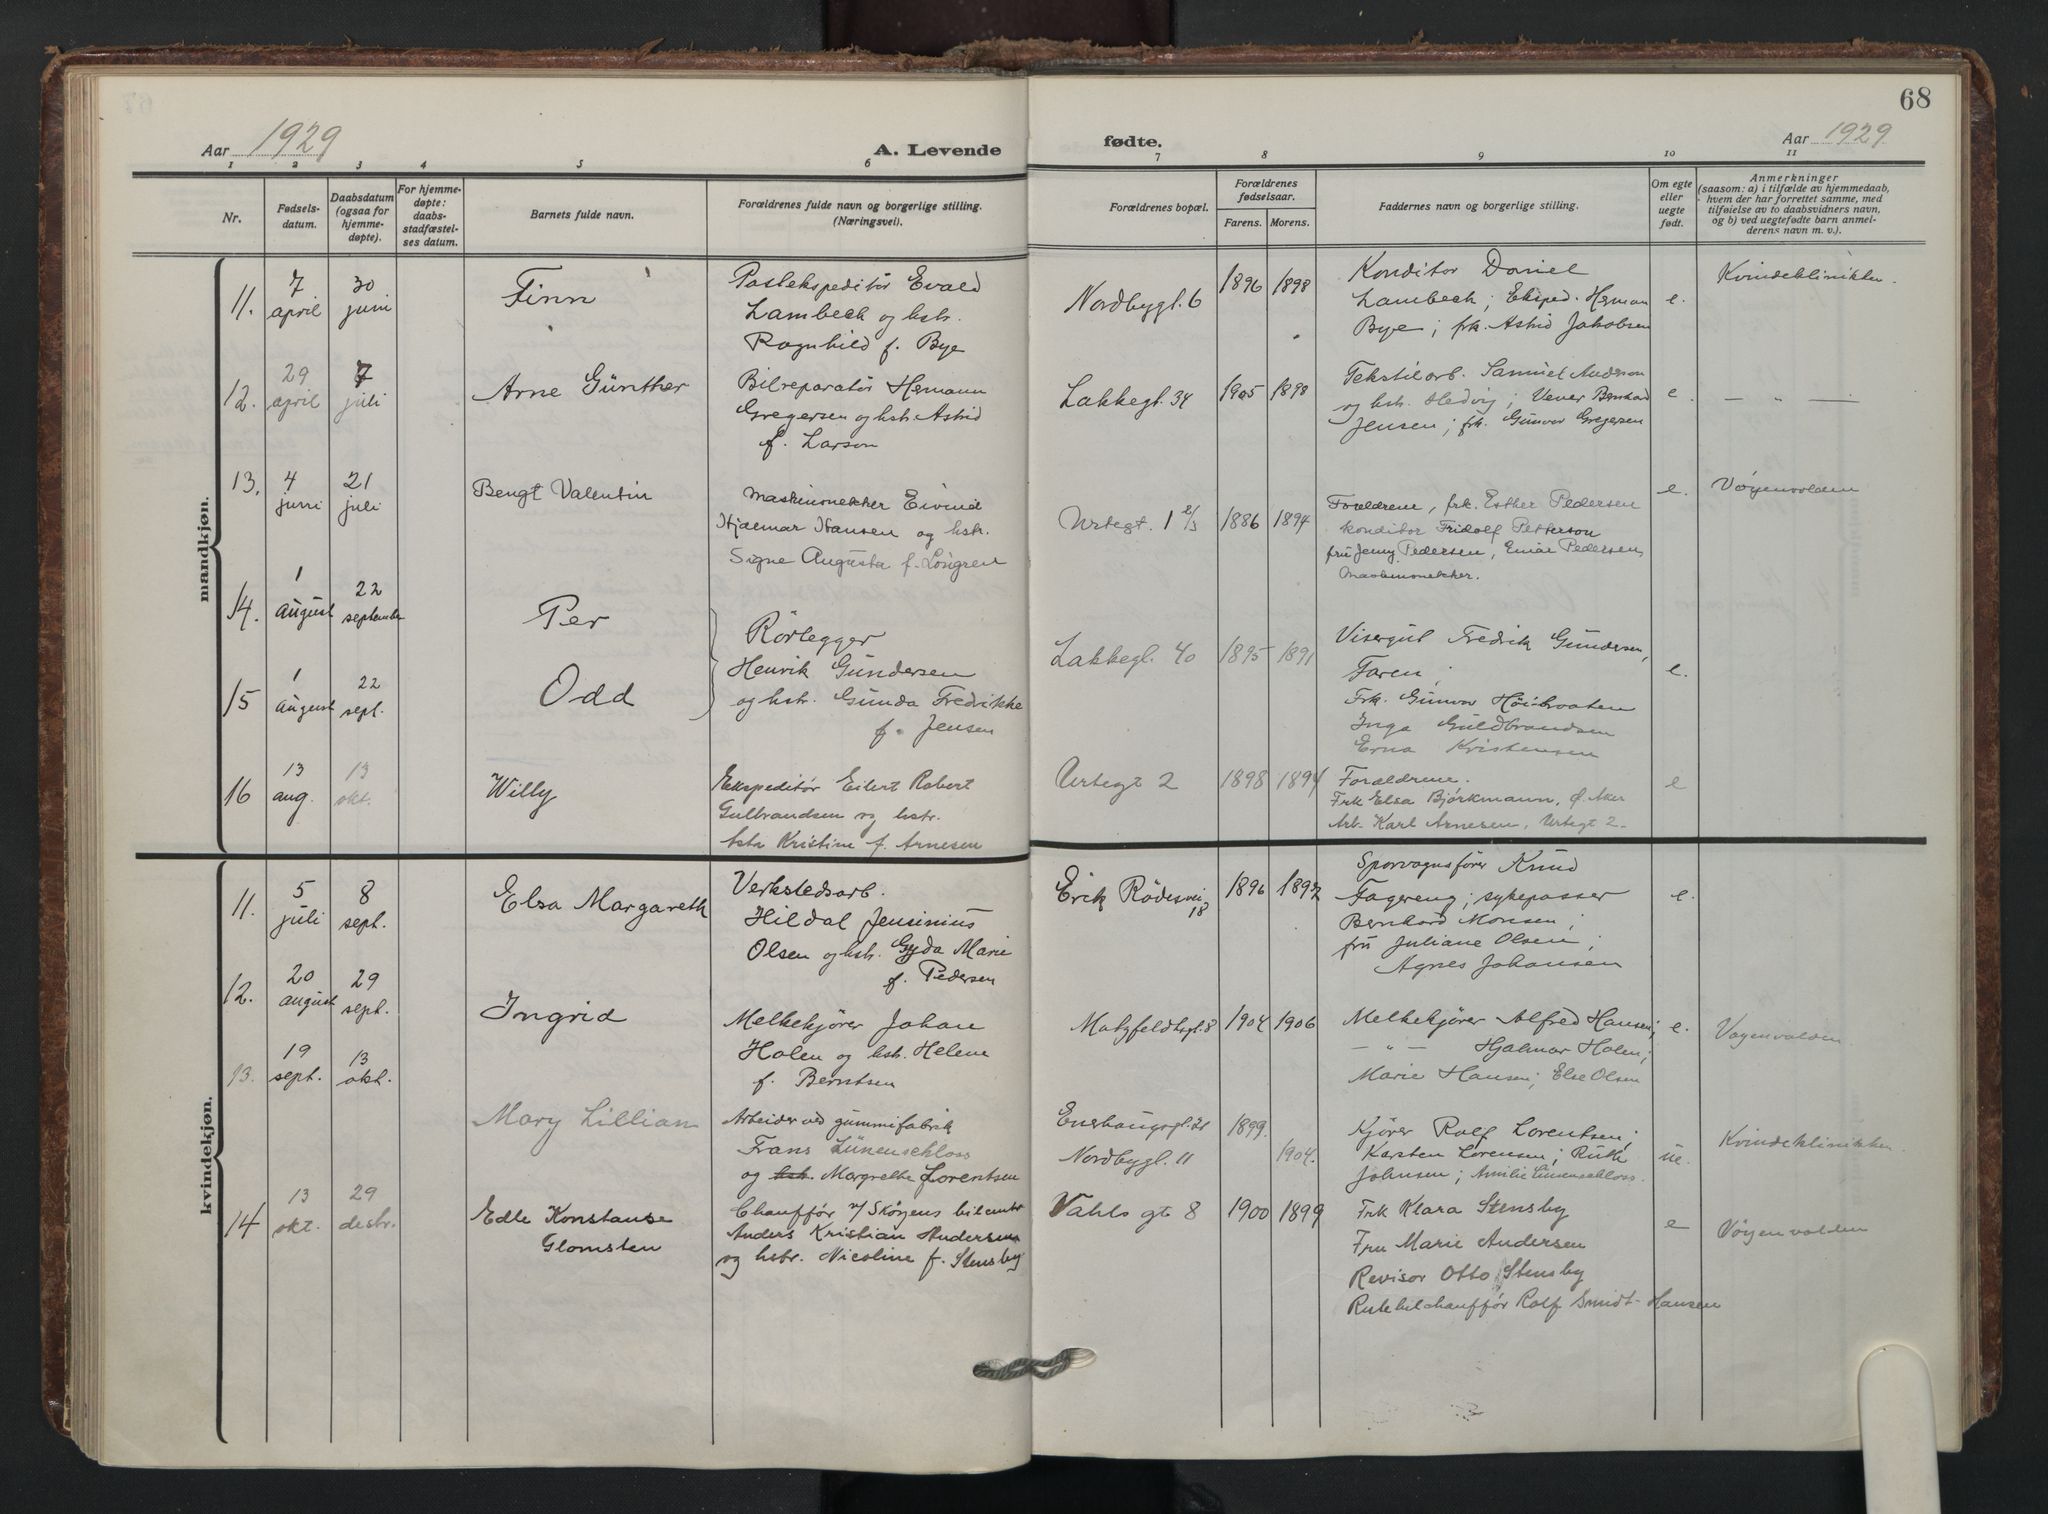 68
Aar 1929
A. Levende
fødte.
Aar 1929
1 2 3 4 5 6 7 8 9 10 11
Nr.
Fødsels-
datum.
Daabsdatum
(ogsaa for
hjemme-
døpte).
For hjemme-
døpte:
daabs-
stadfæstel-
ses datum.
Barnets fulde navn.
Forældrenes fulde navn og borgerlige stilling.
(Næringsvei).
Forældrenes bopæl.
Forældrenes
fødselsaar.
Farens. Morens.
Faddernes navn og borgerlige stilling.
Om egte
eller
uegte
født.
Anmerkninger
(saasom: a) i tilfælde av hjemmedaab,
hvem der har forrettet samme, med
tilføielse av to daabsvidners navn,
og b) ved uegtefødte barn anmel-
derens navn m. v.).
mandkjøn.
11.
7
april
30
juni
Finn
Postekspeditör Evald
Lambech og hstr.
Ragnhild f. Bye
Nordbygt. 6
1896 1898
Konditor Daniel
Lambech; Eksped. Herman
Bye; frk. Astrid Jakobsen
e.
Kvindeklinikken
12.
29
april
7
juli
Arne Günther
Bilreparatör Hemann
Gregersen og hstr. Astrid
f. Larson
Lakkegt. 34
1905 1898
Tekstilarb. Samuel Anderson
og hstr. Hedvig; Vever Bernhard
Jensen; frk. Gunvor Gregersen
e.
— " —
13.
4
juni
21
juli
Bengt Valentin
Maskinsnekker Eivind
Hjalmar Hansen og hstr.
Signe Augusta f. Löngren
Urtegt. 1 2/3
1886 1894
Foreldrene, frk. Esther Pedersen
konditor Fridolf Petterson
fru Jenny Pedersen, Einar Pedersen,
Maskinsnekker.
e.
Vøyenvolden
14.
1
august
22
september
Per
Rörlegger
Henrik Gundersen
og hstr. Gunda Fredrikke
f. Jensen
Lakkegt. 40
1895 1891
Visergut Fredrik Gundersen,
Faren;
Frk. Gunvor Höibraaten
Inga Guldbrandsen
Erna Kristensen
e.
15
1
august
22
sept.
Odd
16
13
aug.
13
okt.
Willy
Ekspeditör Eilert Robert
Gulbrandsen og hstr.
Asta Kristine f. Arnesen
Urtegt 2
1898 1894
Foreldrene.
Frk Elsa Björkmann, Ø. Aker
Arb. Karl Arnesen, Urtegt 2.
e
kvindekjøn.
11.
5
juli
8
sept.
Elsa Margareth
Verkstedsarb.
Hildal Jensinius
Olsen og hstr. Gyda Marie
f. Pedersen
Erik Rödesvei
18
1896 1892
Sporvognsfører Knud
Fagereng; sykepasser
Bernhard Monsen;
fru Juliane Olsen;
Agnes Johansen
e.
12.
20
august
29
sept.
Ingrid
Melkekjører Johan
Holen og hstr. Helene
f. Berntsen
Motzfeldtsgt. 8
1904 1906
Melkekjører Alfred Hansen;
— " — Hjalmar Holen;
Marie Hansen; Else Olsen
e.
Vøyenvolden.
13.
19
sept.
13
okt.
Mary Lillian
Arbeider ved gummifabrik
Frans Lünenschloss
og hstr. Margrethe Lorentsen
Enerhaugsgt. 21
Nordbygt. 11
1899.
1904.
Kjører Rolf Lorentsen;
Karsten Lorensen; Ruth
Johnsen; Amilie Lünenschloss.
ue.
Kvindeklinikken.
14
13
okt.
29
desbr.
Edle Konstanse
Glomsten
Chauffør v/ Skøyens bilcentr
Anders Kristian Andersen
og hstr. Nicoline f. Stensby
Vahls gt 8
1900 1899
Frk Klara Stensby
Fru Marie Andersen
Revisor Otto Stensby
Rutebilchauffør Rolf Smidt-Hansen
e
Vøyenvolden